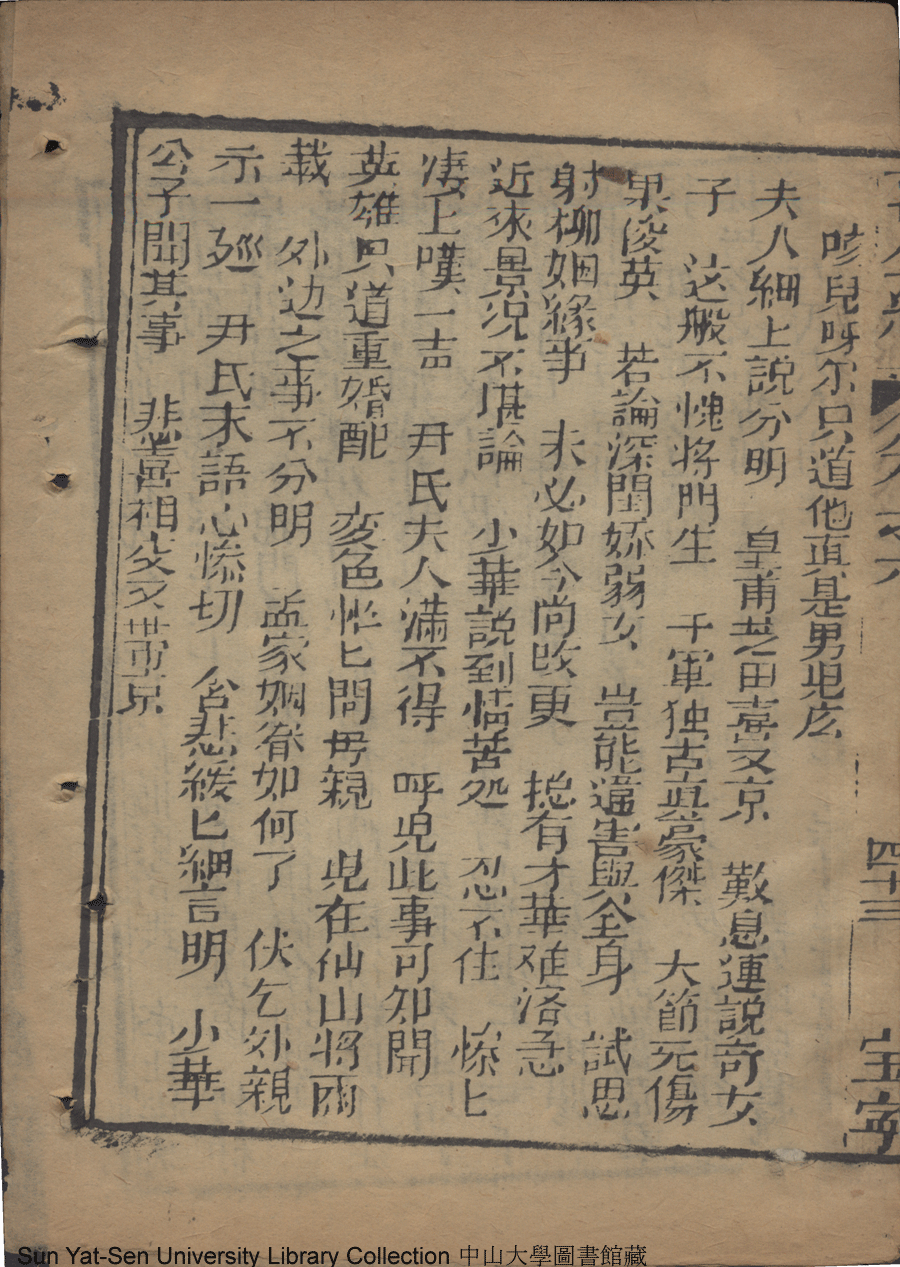 四十三
咳兒呀尔只道他真是男児庅
夫人細上説分明 皇甫芝田喜又京 歎息連説奇女
子 这般不愧将門生 千軍独占真豪傑 大節无傷
果俊英 若論深閨娇弱女 豈能遠害與全身 試思
射柳姻緣事 未必如今尚改更 捴有才華难洛急
近來景况不堪論 少華説到情苦处 忍不住 惨匕
凄上嘆一吉 尹氏夫人满不得 呼児此事可知聞
英雄只道重婚配 変色忙匕問母親 児在仙山将兩
載 外边之事不分明 孟家姻眷如何了 伏乞外親
示一 尹氏未語心惨切 含悲緩匕細言明 少華
公子聞其事 悲喜相交又带京
Sun Yat-Sen University Library Collection 中山大學圖書館藏